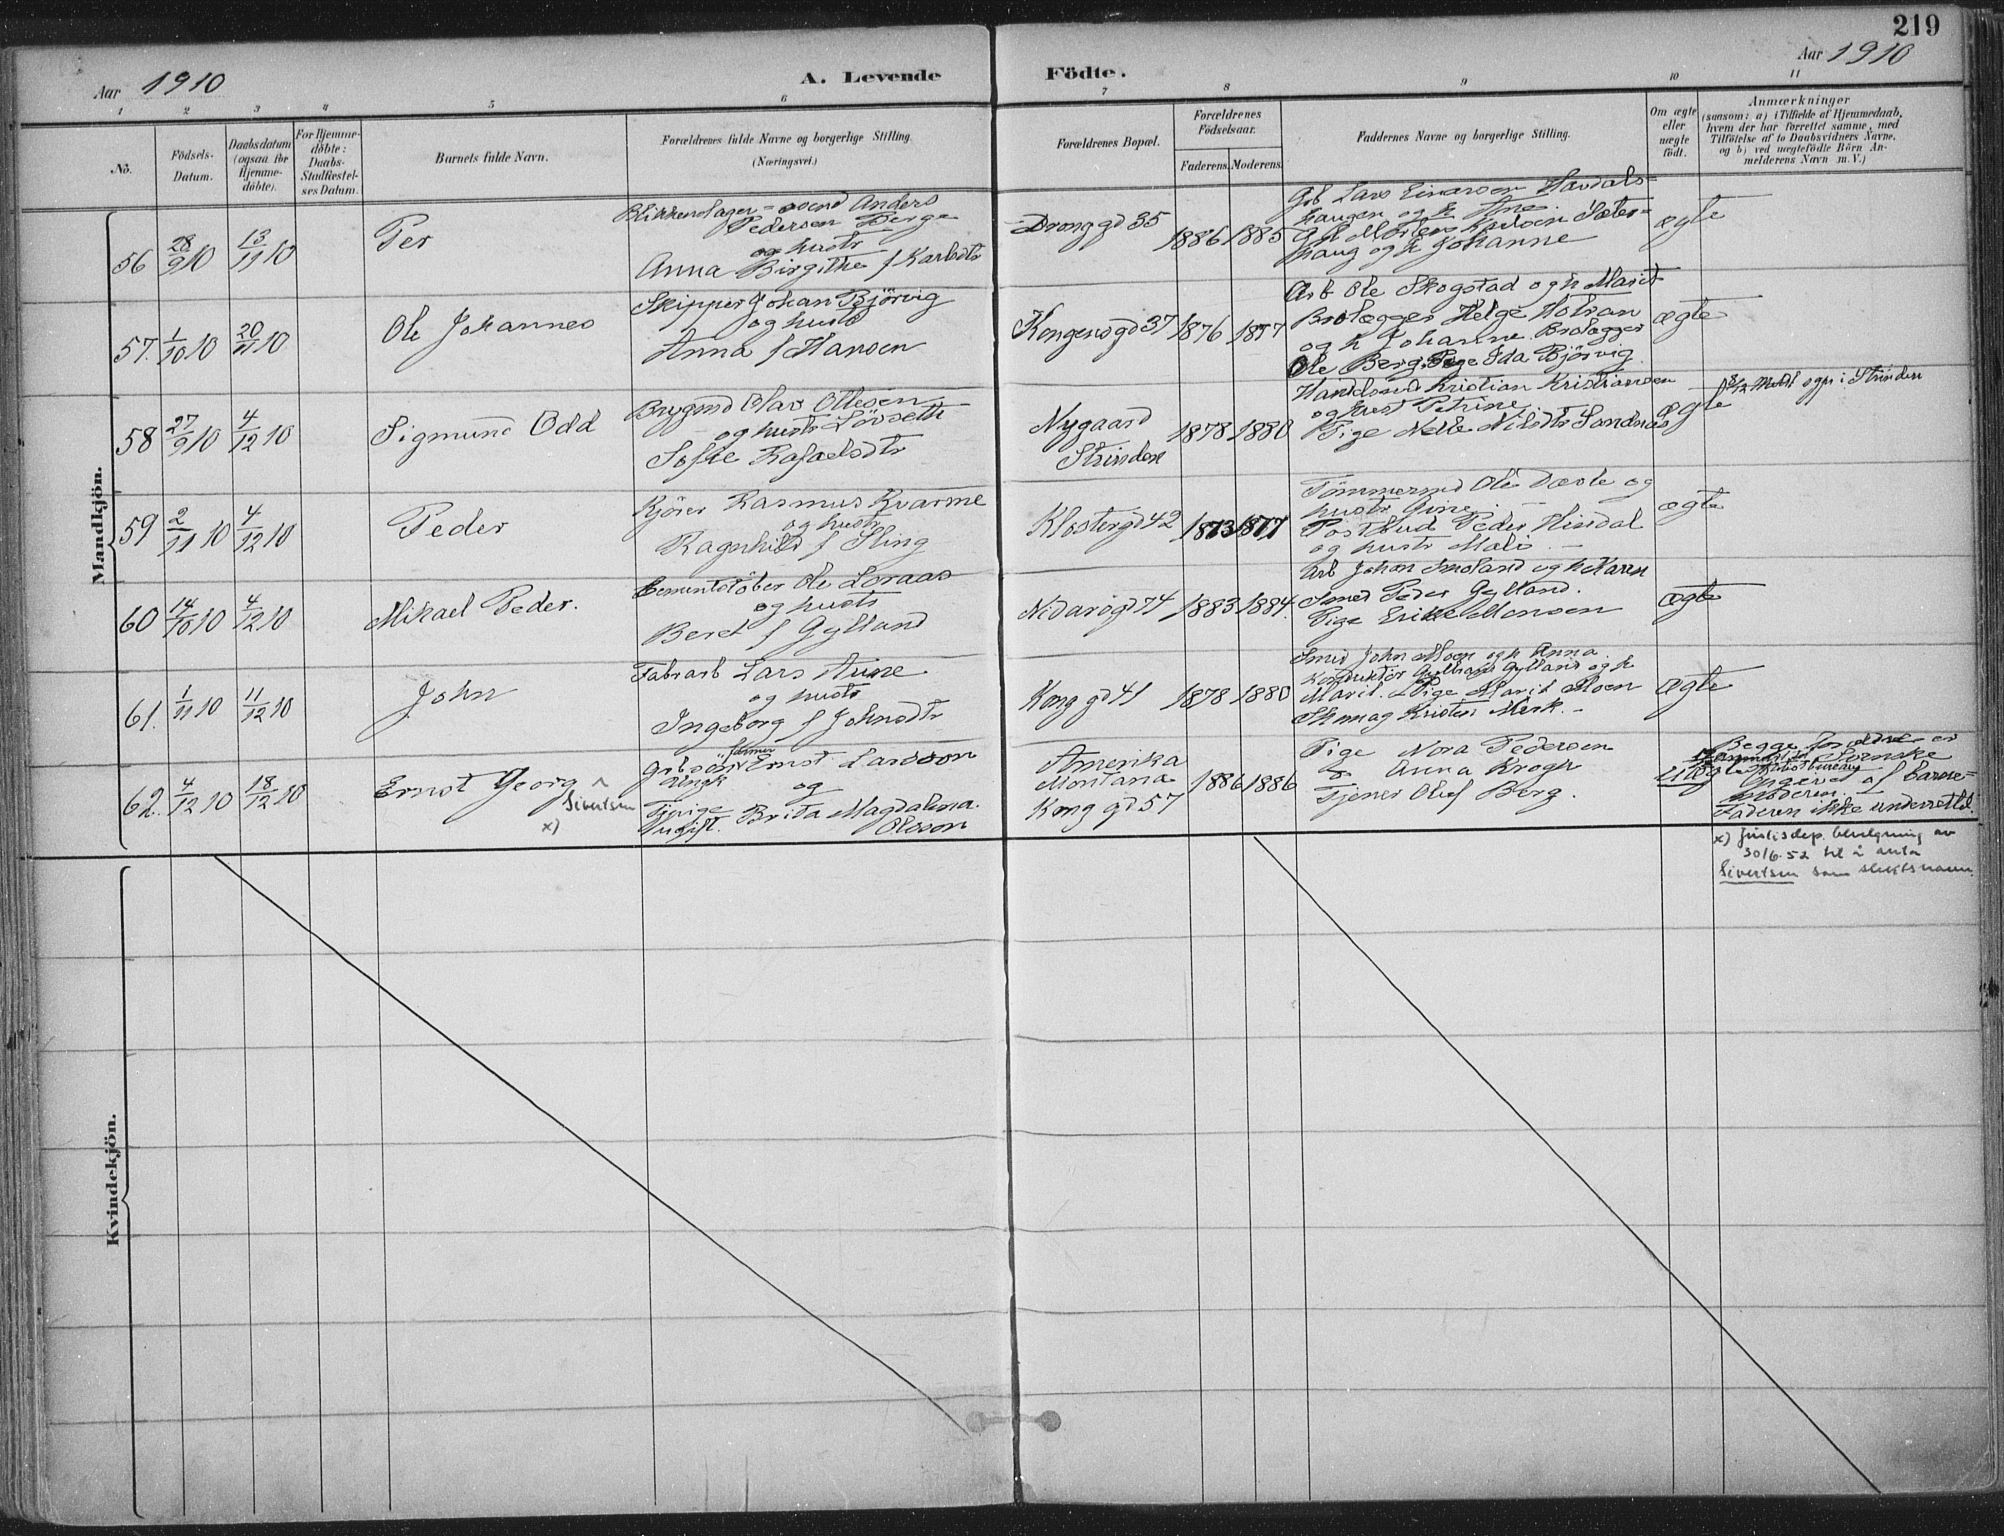 219
Aar 1910
A. Levende
Födte.
Aar 1910
1 2 3 4 5 6 7 8 9 10 11
No.
Födsels-
Datum.
Daabsdatum
(ogsaa for
Hjemme-
döbte).
For Hjemme-
döbte:
Daabs-
Stadfæstel-
ses Datum.
Barnets fulde Navn.
Forældrenes fulde Navne og borgerlige Stilling.
(Næringsvei.)
Forældrenes Bopæl.
Forældrenes
Födselsaar.
Faderens. Moderens.
Faddernes Navne og borgerlige Stilling.
Om ægte
eller
uægte
födt.
Anmærkninger
(saasom: a) i Tilfælde af Hjemmedaab,
hvem der har forrettet samme, med
Tilföielse af to Daabsvidners Navne,
og b) ved uægtefödte Börn An-
melderens Navn m. V.)
Mandkjön.
56 28/9 10 13/11 10
Per
Blikkenslager-svend Anders
Pedersen Berge
og hustr
Anna Birgithe f Karlsdtr
Drong gd 35
1886 1885
Gb Lars Einarsen Havdals-
haugen og h Ane.
Morten Karlsen Sæter-
haug og h Johanne
ægte
57 1/10 10 20/11 10
Ole Johannes
Skipper Johan Bjørvig
og hustr
Anna f Hansen
Kongensgd 37
1876 1877
Arb Ole Skogstad og h Marit
Brolægger Helge Hotran
og h Johanne Brolægger
Ole Berg, Pige Ida Bjørvig.
ægte
58 27/9 10 4/12 10
Sigmund Odd
Brygmd Olav Ottesen
og hustr Lövseth
Sofie Rafaelsdtr
Nygaard
Strinden
1878 1880
Handelsmd Kristian Kristiansen
og hust Petrine
Pige Nelle Nilsdtr Sandnes
ægte
8/12 Meldt sogpr i Strinden
59 2/11 10 4/12 10
Peder
Kjører Rasmus Kvarme
og hustr
Ragnhild f Sling
Klostergd 42
1873 1877
Tömmermd Ole Dævle og
hustr Gine. —
Postbud Peder Hindal
og hustr Mali. —
ægte
60 14/10 10 4/12 10
Mikael Peder.
Cementstøber Ole Loraas
og hustr
Beret f Gylland
Nidarøgd 74
1883 1884.
Arb Johan Smoland og h Karen
Smed Peder Gylland.
Pige Erikke Monsen
ægte
61. 1/11 10 11/12 10
John
Fabrarb Lars Aune.
og hustr
Ingeborg f Johnsdtr
Kong gd 41
1878 1880
Smed John Moen og h Anna.
Konduktør Gylland og h
Marit. Pige Marit Moen
Skomag Kristen Merk. —
ægte
62. 4/12 10 18/12 10
Ernst Georg ^
Sivertsen
x)
farmer
Ernst Larsson
Ungk
og
Tjpige
Ugift. Brita Magdalena
Olsson
Amerika
Montana
Kong gd 57
1886 1886
Pige Nora Pedersen
" Anna Krogh
Tjener Olof Berg.
uægte
Begge forældre er
Svenske
Opgivet af Barne-
moderen.
Faderen ikke underrettet.
x) Justisdep. bevilgning av
30/6-52 til å anta
Sivertsen som slektsnavn.
Kvindekjön.